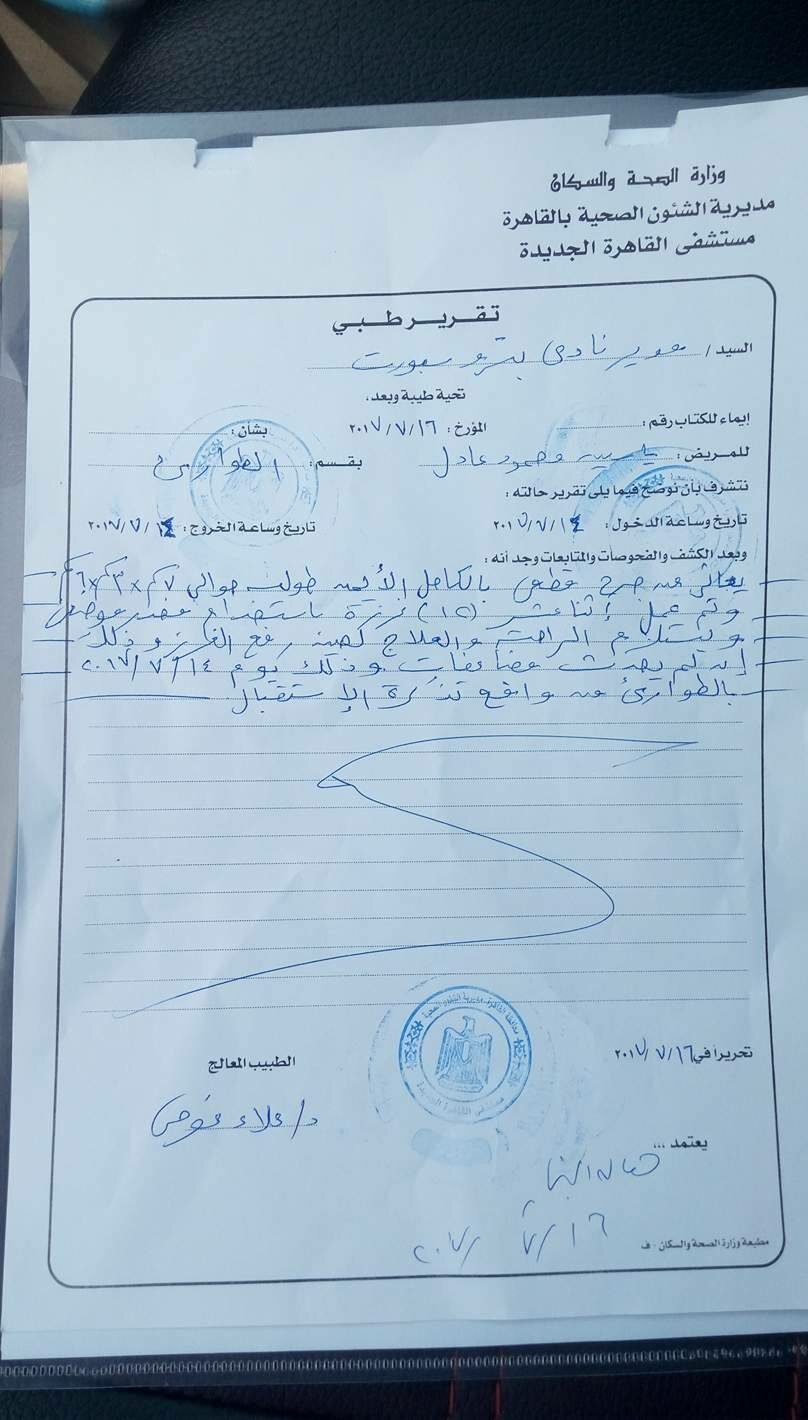 وزارة الصحة والسكان
مديرية الشئون الصحية بالقاهرة
مستشفى القاهرة الجديدة
تقرير طبي
السيد / مدير نادى بترو سبورت
تحية طيبة وبعد،
إيماء للكتاب رقم : المؤرخ : ٢٠١٧/٧/١٦ بشأن :
للمريض : ياسين محمود عادل بقسم : الطوارئ
نتشرف بأن نوضح فيما يلى تقرير حالته :
تاريخ وساعة الدخول : ٢٠١٧/٧/١٤ تاريخ وساعة الخروج : ٢٠١٧/٧/١٤
وبعد الكشف والفحوصات والمتابعات وجد أنه :
يعانى من جرح قطعى بالكاحل الأيمن طوله حوالي ٧كم x ٣كم x
وتم عمل إثنا عشر (١٢) غرزة باستخدام مخدر موضعى
ويستلزم الراحة والعلاج لحين رفع الغرز وذلك
إن لم يحدث مضاعفات وذلك يوم ٢٠١٧/٧/١٤
بالطوارئ من واقع تذكرة الإستقبال
تحريراً فى ٢٠١٧/٧/١٦
الطبيب المعالج
د/ علاء عوض
يعتمد ...
٢٠١٧/٧/١٦
مطبعة وزارة الصحة والسكان - ف